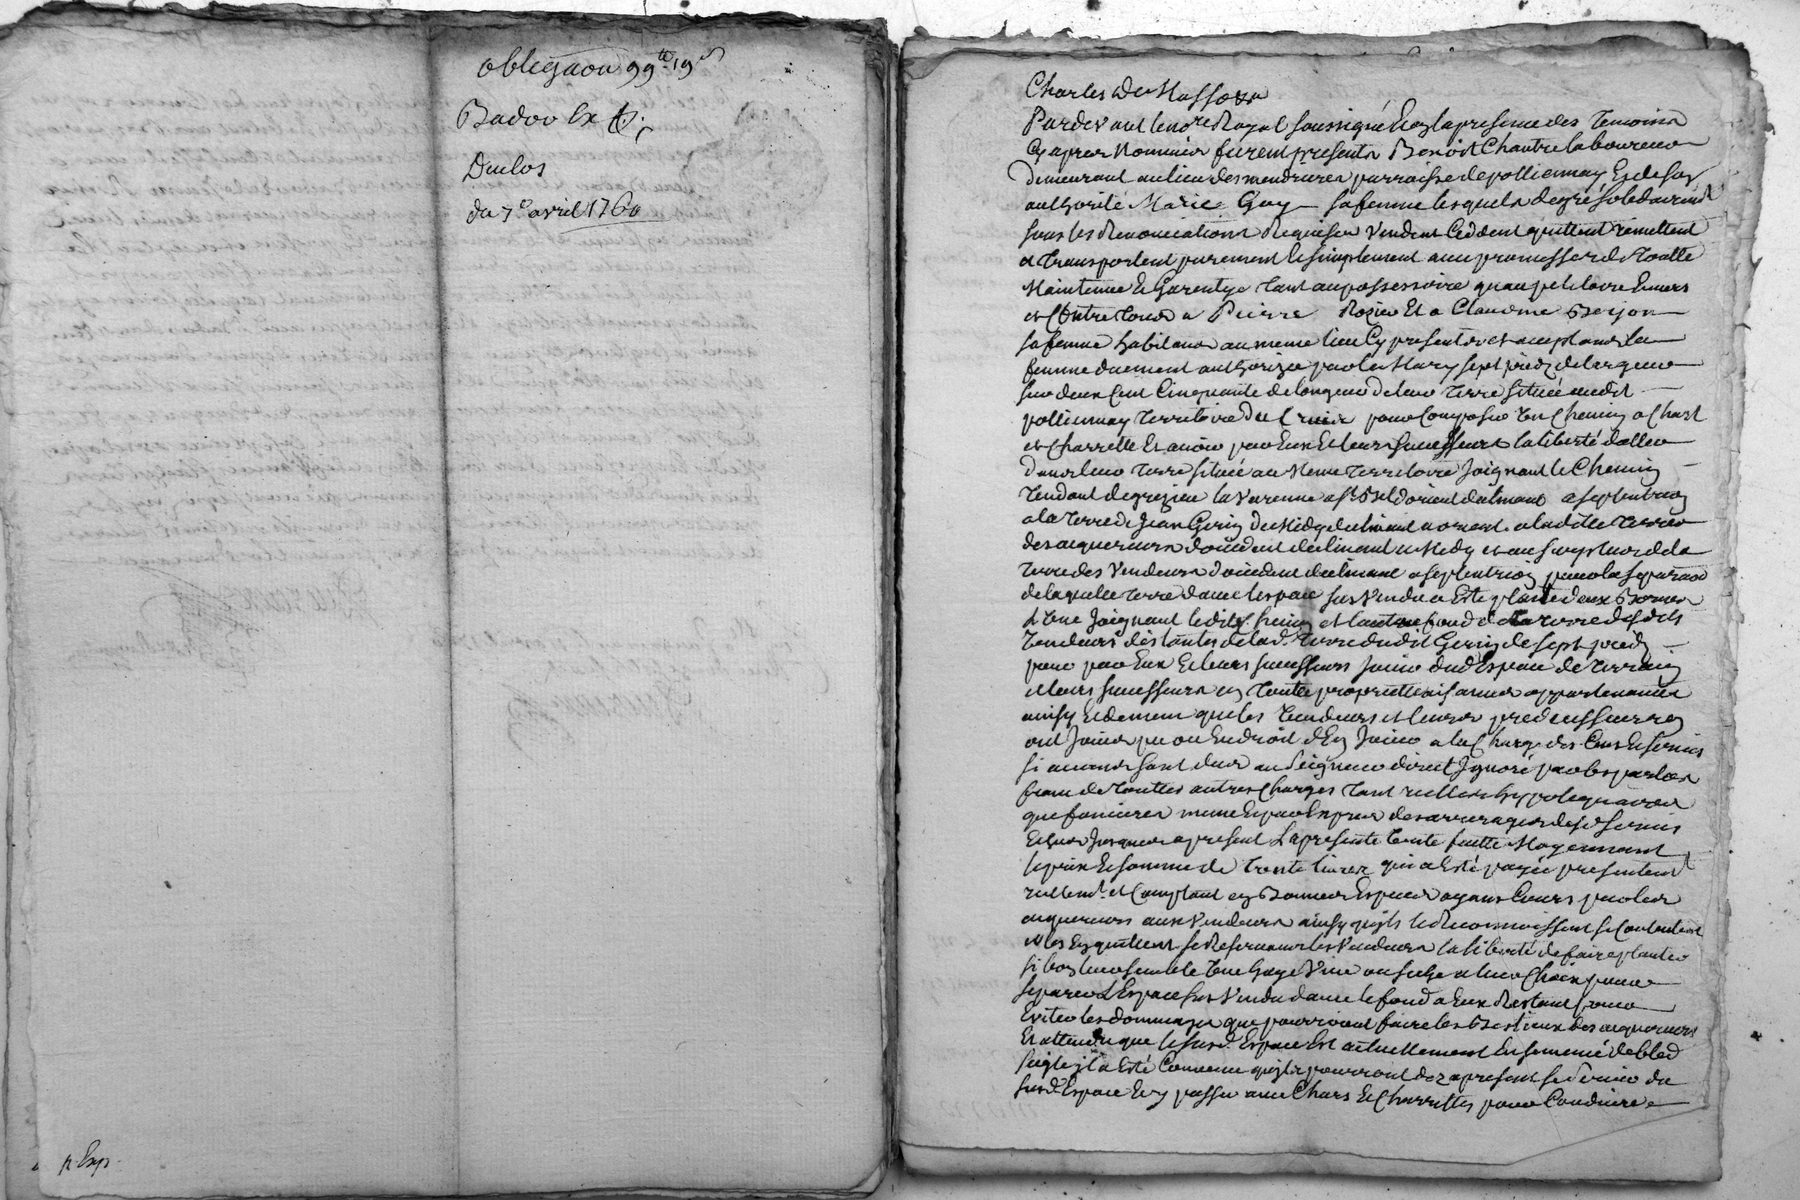 obligaon 99 tt 19 s
Badoo Ex
Duclos
du 7e avril 1760
n Exp.
Charles De Masso
Pardevant le nore Royal soussigné Et en la presence des Temoins
Cy apres Nommés furent presents Benoist Chantre laboureur
demeurant au lieu des mendrieres parroisse de pollionnay Et de son
authorité Marie Guy sa femme lesquels de gré solidairemt
sous les Renonciations Requises Vendent Ceddent quittent remettent
et transportent purement Et simplement avec promesse de Toutte
Maintenue Et Garentye Tant au possessoire quau petitoire Envers
et Contre tous a Pierre Rozier Et a Claudine Berjon
sa femme habitans au meme lieu Cy presents et acceptans la
femme duement authorizée par led Mary sept pieds de largeur
sur deux Cent Cinquante de longueur de leur Terre située aud
pollionnay Territoire Du pour Composer un Chemin a Chart
et Charrette Et avoir par Eux Et leurs successeurs la liberté daller
dans leur Terre située au Meme Territoire Joignant le Chemin
Tendant de grezieu la Varenne a St Bel dorient declinant a septentrion
a la Terre de Jean Gerin De Midy declinant a orient a la ditte Terre
des acquereurs doccident declinant a Midy et au surplus de la
Terre des Vendeurs doccident declinant a septentrion pour la separaon
de laquelle Terre davec lespace sus Vendu a Esté planté deux Bornes
L'Une Joignant ledit Chemin et lautre au fond de la terre desdits
Vendeurs distantes de lad. Terre dudit Gerin de sept pieds
pour par Eux Et leurs successeurs Jouir dud Espace de Terrain
et leurs successeurs en Toute proprietté aisances appartenances
ainsy Et de meme que les Vendeurs et leurs predecesseurs en
ont Jouis pu ou Eu droit d'En Jouir a la Charge des Cens Et servis
si aucuns sont dus au Seigneur direct Ignoré par les parties
franc de Touttes autres Charges Tant reelles hypotequaires
que foncieres meme Et par Exprés des arrerages desd servis
Echus Jusques a present La presente Vente faitte Moyennant
le prix Et somme de Trente livres qui a Esté payée presentemt
reellemt et Comptant en Bonnes Especes ayans Cours par les
acquereurs aux Vendeurs ainsy quils le Reconnoissent se Contentent
et les En quittent se Reservant les Vendeurs la liberté de faire planter
si bon leur semble Une haye Vive ou seche a leur Choix pour
separer L'Espace sus Vendu davec le fond a Eux Restant pour
Eviter les dommages que pourroient faire les Bestiaux des acquereurs
Et attendu que le susd. Espace Est actuellement Ensemencé de bled
seigle il a Esté Convenu quils pourront dez a present se servir du
susd. Espace Et y passer avec Chars Et Charrettes pour Conduire